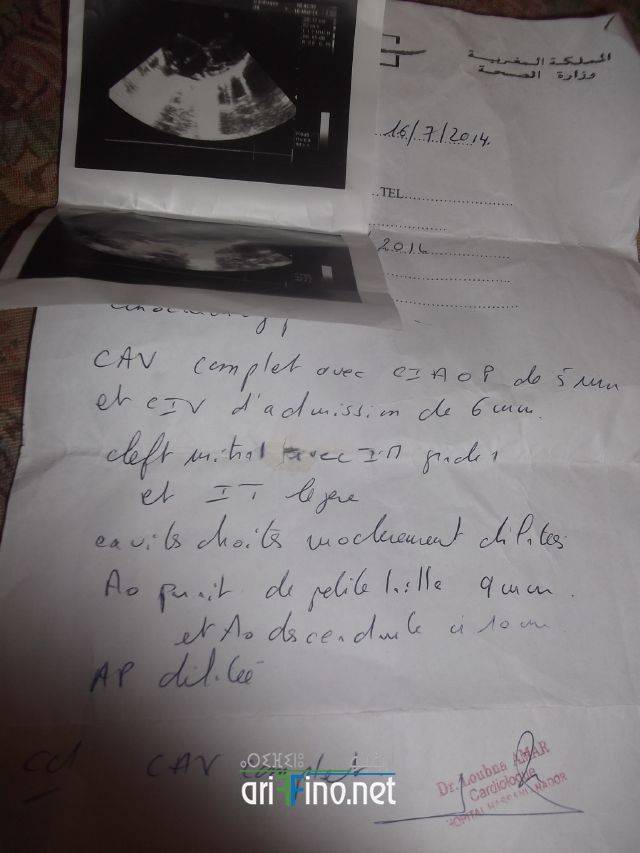 المملكة المغربية
وزارة الصحة
16/7/2014.
TEL
CAV complet avec CIAOP de 5 mm
et CIV d'admission de 6 mm.
cleft mitral avec IM grade 1
et IT légère
cavités droites modérément dilatées
Ao parait de petite taille 9 mm.
et Ao descendante à 10 mm
AP dilatée
CCl CAV complet
Dr. Loubna AMAR
Cardiologue
HOPITAL HASSANI NADOR
ariffino.net